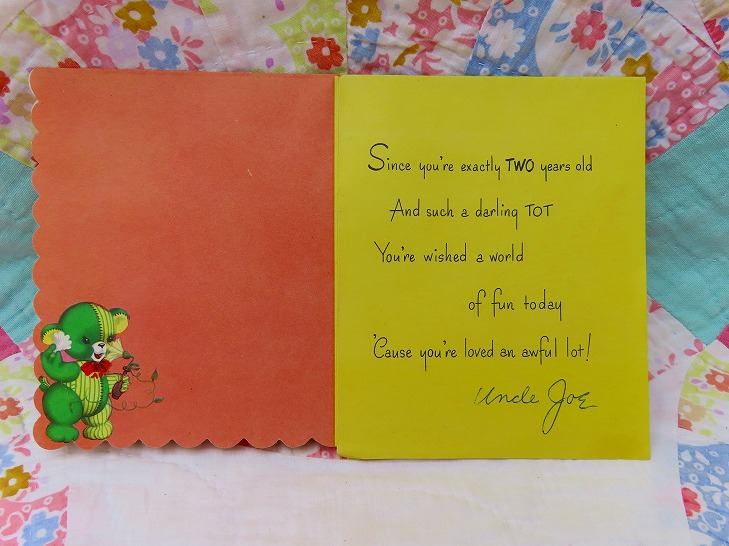 Since you're exactly TWO years old
And such a darling TOT
You're wished a world
of fun today
'Cause you're loved an awful lot!
Uncle Joe